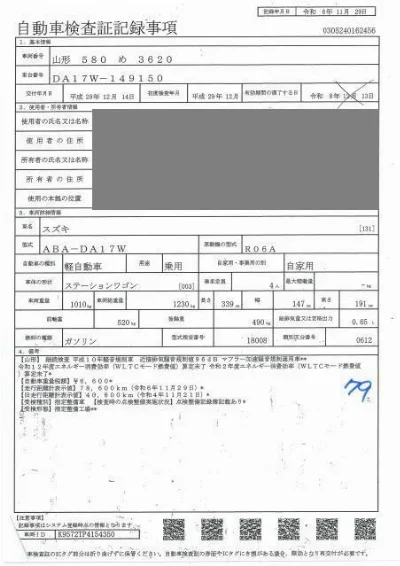 記録年月日 令和 6年11月29日
自動車検査証記録事項
0305240162456
1. 基本情報
車両番号 山形 580 め 3620
車台番号 DA17W-149150
交付年月日 平成 29年 12月 14日 初度検査年月 平成 29年 12月 有効期間の満了する日 令和 8年12月 13日
2. 使用者・所有者情報
使用者の氏名又は名称
使用者の住所
所有者の氏名又は名称
所有者の住所
使用の本拠の位置
3. 車両詳細情報
車名 スズキ [131]
型式 ABA-DA17W 原動機の型式 R06A
自動車の種別 軽自動車 用途 乗用 自家用・事業用の別 自家用
車体の形状 ステーションワゴン [003] 乗車定員 4人 最大積載量 -kg
車両重量 1010kg 車両総重量 1230kg 長さ 339cm 幅 147cm 高さ 191cm
前軸重 520kg 後軸重 490kg 総排気量又は定格出力 0.65L
燃料の種類 ガソリン 型式指定番号 18008 類別区分番号 0612
4. 備考
【山形】 継続検査 平成10年騒音規制車 近接排気騒音規制値96dB マフラー加速騒音規制適用車**
令和12年度エネルギー消費効率(WLTCモード燃費値)算定未了 令和2年度エネルギー消費効率(WLTCモード燃費値
)算定未了*
【自動車重量税額】¥6,600*
【走行距離計表示値】78,600km(令和6年11月29日)*
【旧走行距離計表示値】40,800km(令和4年11月21日)*
【受検種別】指定整備車 【検査時の点検整備実施状況】点検整備記録簿記載あり*
【受検形態】指定整備工場**
79
【注意事項】
記録事項はシステム登録時点の情報となります
車両ID K9572TP4154350
車検査証のICタグ部分は折り曲げずに保管ください。自動車検査証の券面やICタグにき損がある場合、無効となり再交付が必要です。